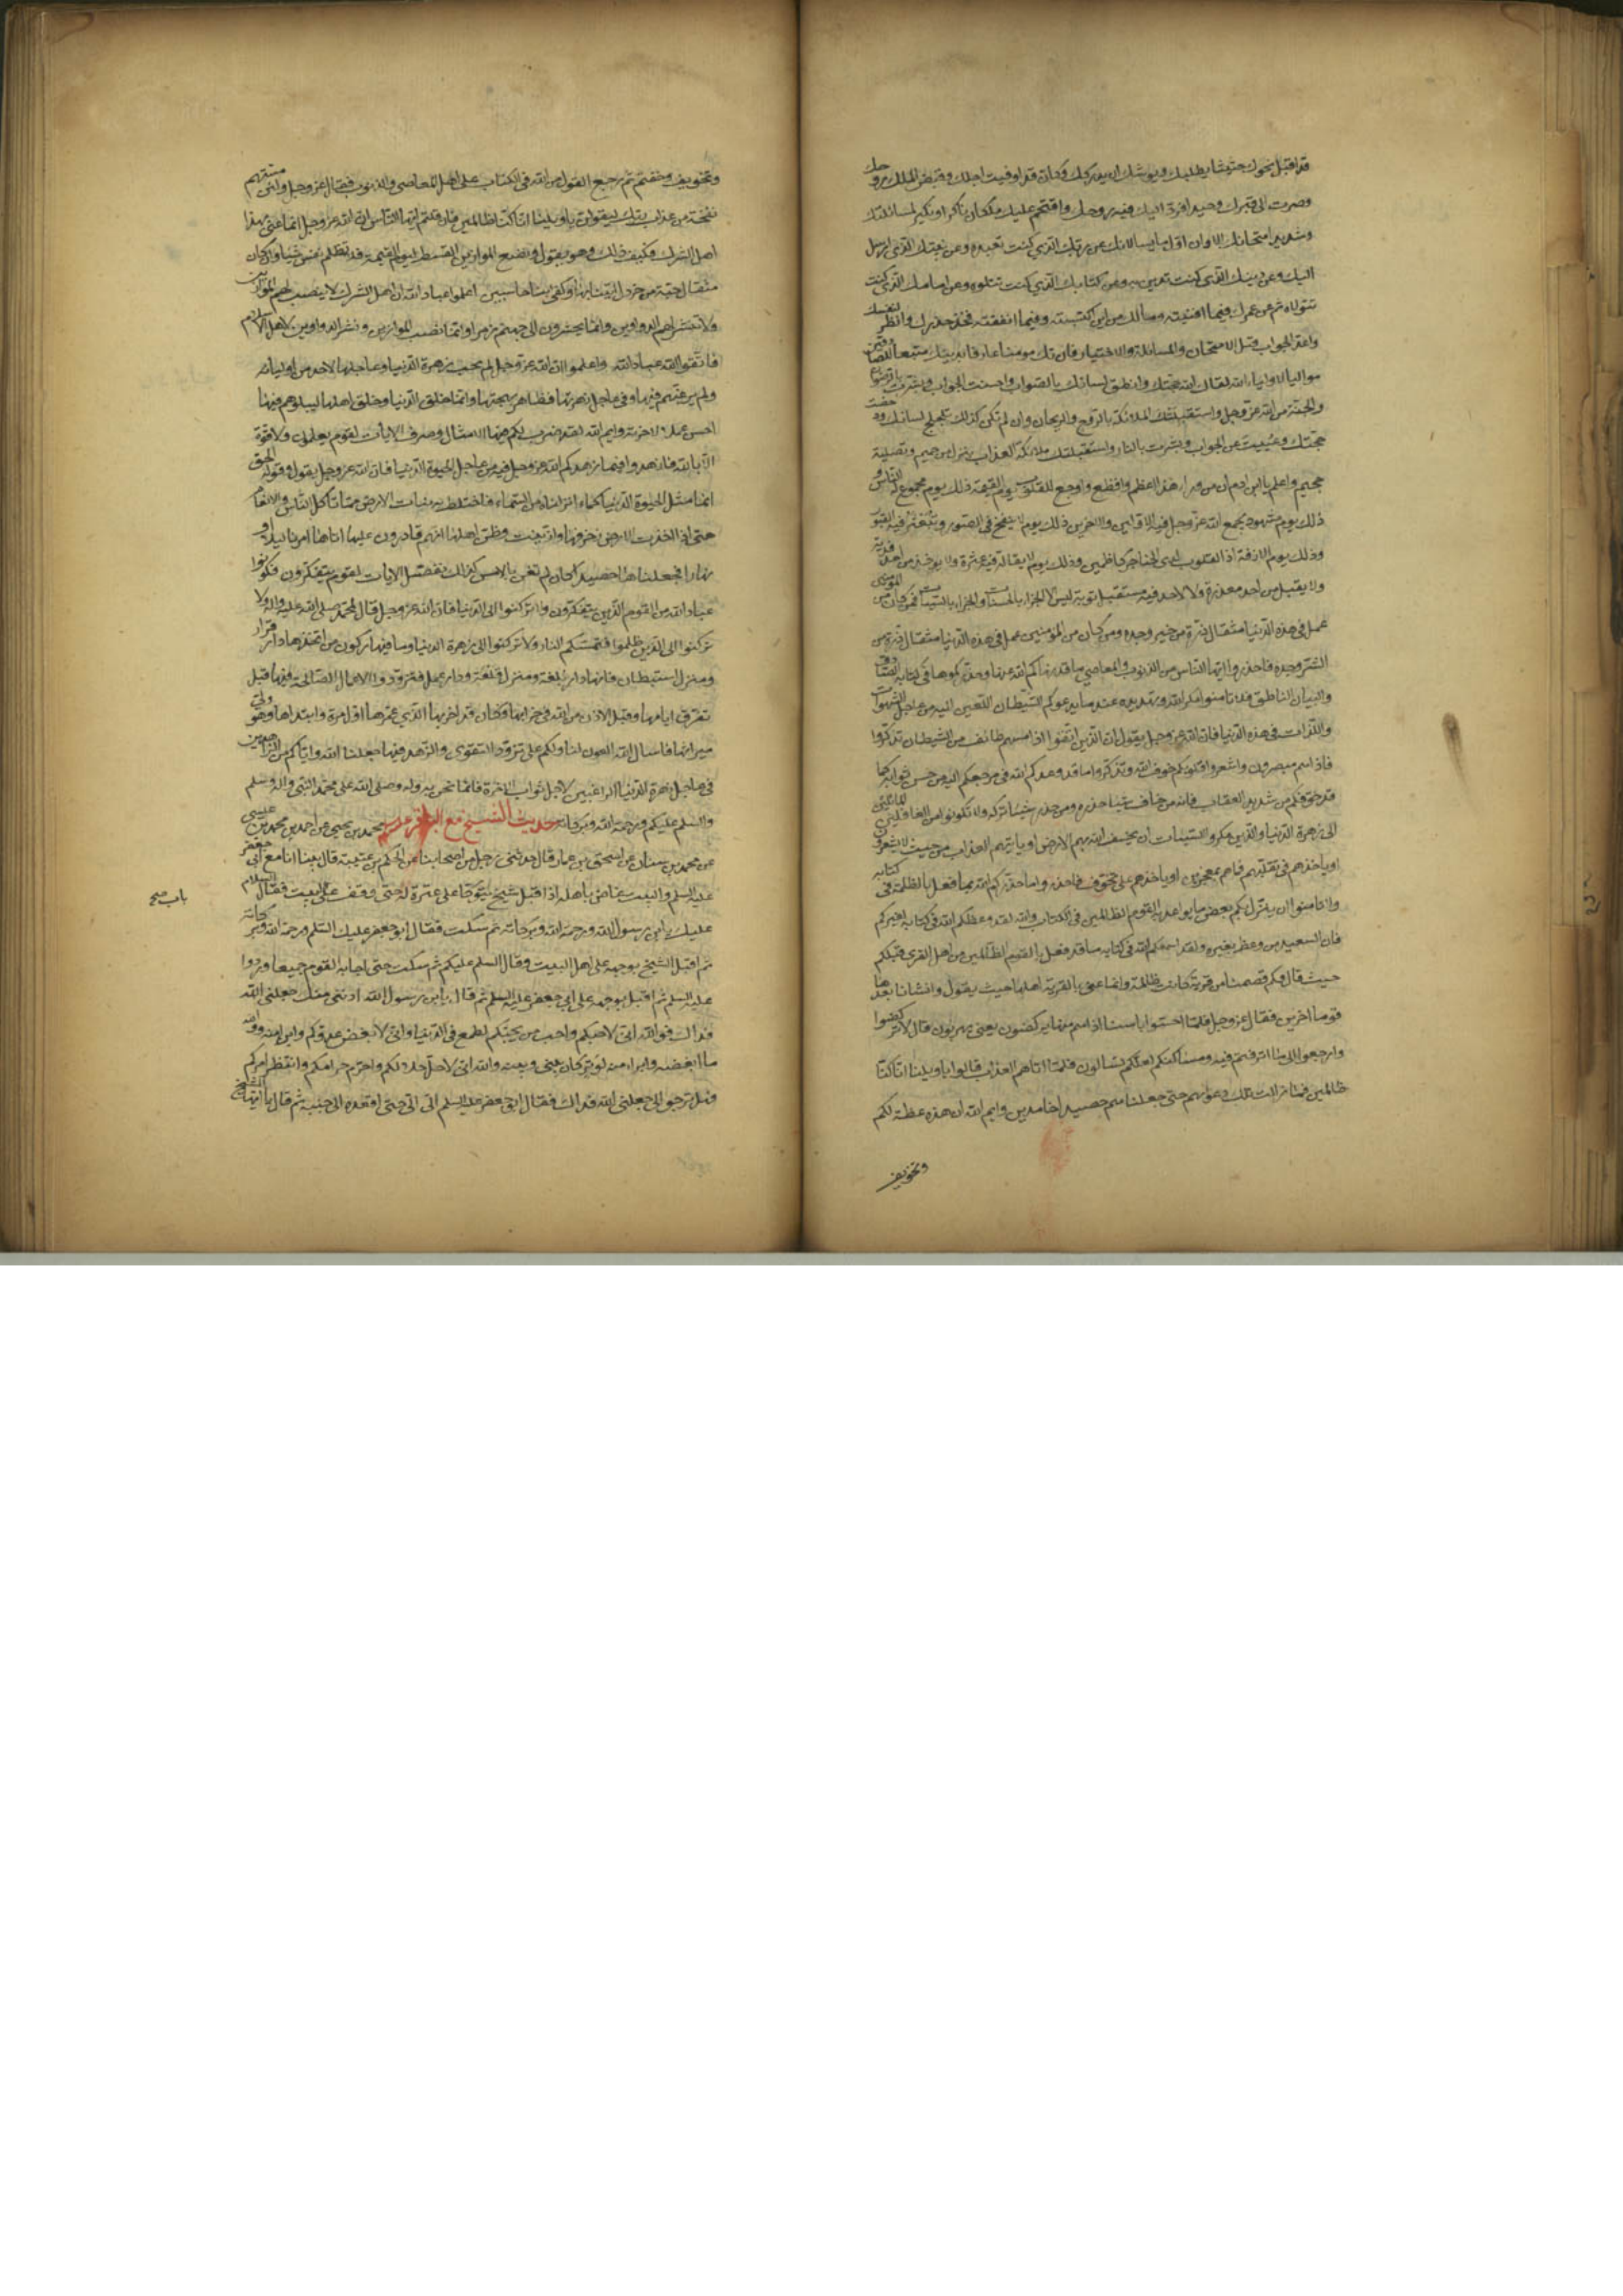 قد اقبل نحوك حثيثا يطلبك ويوشك ان يدركك وكان قد اوفيت اجلك وقبض الملك روحك
وصرت الى قبرك وحيدا فرد اليك فيه روحك واقتحم عليك ملكان ناكر ونكير لمسائلتك
وشديد امتحانك الا وان اول ما يسالانك عن ربك الذي كنت تعبده وعن نبيك الذي ارسل
اليك وعن دينك الذي كنت تدين به وعن كتابك الذي كنت تتلوه وعن امامك الذي كنت
تتولاه ثم عن عمرك فيما افنيته ومالك من اين اكتسبته وفيما انفقته فخذ حذرك وانظر لنفسك
واعد الجواب قبل الامتحان والمسائلة والاختبار فان تك مومنا عارفا بدينك متبعا للصادقين
مواليا لاولياء الله لقاك الله حجتك وانطق لسانك بالصواب واحسنت الجواب وبشرت بالرضوان
والجنة من الله عز وجل واستقبلتك الملائكة بالروح والريحان وان لم تكن كذلك تلجلج لسانك ودحضت
حجتك وعييت عن الجواب وبشرت بالنار واستقبلتك ملائكة العذاب بنزل من حميم وتصلية
جحيم واعلم يا ابن ادم ان من وراء هذا اعظم وافظع واوجع للقلوب يوم القيمة ذلك يوم مجموع له الناس و
ذلك يوم مشهود يجمع الله عز وجل فيه الاولين والاخرين ذلك يوم ينفخ في الصور وتبعثر فيه القبور
وذلك يوم الازفة اذ القلوب لدى الحناجر كاظمين وذلك يوم لا يقال فيه عثرة ولا يوخذ من احد فدية
ولا يقبل من احد معذرة ولا لاحد فيه مستقبل توبة ليس الا الجزاء بالحسنات والجزاء بالسيئات فمن كان من المومنين
عمل في هذه الدنيا مثقال ذرة من خير وجده ومن كان من المؤمنين عمل في هذه الدنيا مثقال ذرة من
الشر وجده فاحذروا ايها الناس من الذنوب والمعاصي ما قد نهاكم الله عنها وحذركموها في كتابه الصادق
والبيان الناطق فلا تامنوا مكر الله وتهديده عند ما يدعوكم الشيطان اللعين اليه من عاجل الشهوات
واللذات في هذه الدنيا فان الله عز وجل يقول ان الذين اتقوا اذا مسهم طائف من الشيطان تذكروا
فاذا هم مبصرون واشعروا قلوبكم خوف الله وتذكروا ما قد وعدكم الله في مرجعكم اليه من حسن ثوابه كما
قد خوفكم من شديد العقاب فانه من خاف شيئا حذره ومن حذر شيئا تركه ولا تكونوا من الغافلين المائلين
الى زهرة الدنيا والذين مكروا السيئات ان يخسف الله بهم الارض او ياتيهم العذاب من حيث لا يشعرون
او ياخذهم في تقلبهم فما هم بمعجزين او ياخذهم على تخوف فاحذروا ما حذركم الله بما فعل بالظلمة في كتابه
ولا تامنوا ان ينزل بكم بعض ما يواعد به القوم الظالمين في الكتاب والله لقد وعظكم الله في كتابه بغيركم
فان السعيد من وعظ بغيره ولقد اسمعكم الله في كتابه ما قد فعل بالقوم الظالمين من اهل القرى قبلكم
حيث قال وكم قصمنا من قرية كانت ظالمة وانما عنى بالقرية اهلها حيث يقول وانشانا بعدها
قوما اخرين فقال عز وجل فلما احسوا باسنا اذا هم منها يركضون يعني يهربون قال لا تركضوا
وارجعوا الى ما اترفتم فيه ومساكنكم لعلكم تسالون فلما اتاهم العذاب قالوا يا ويلنا انا كنا
ظالمين فما زالت تلك دعواهم حتى جعلناهم حصيدا خامدين وايم الله ان هذه عظة لكم
وتخويف
وتخويف وخفتم ثم رجع القول من الله في الكتاب على اهل المعاصي والذنوب فقال عز وجل ولئن مستهم
نفخة من عذاب ربك ليقولن يا ويلنا انا كنا ظالمين فان قلتم ايها الناس ان الله عز وجل انما عنى بهذا
اهل الشرك فكيف ذلك وهو يقول ونضع الموازين القسط ليوم القيمة فلا تظلم نفس شيئا وان كان
مثقال حبة من خردل اتينا بها وكفى بنا حاسبين اعلموا عباد الله ان اهل الشرك لا ينصب لهم الموازين
ولا تنشر لهم الدواوين وانما يحشرون الى جهنم زمرا وانما نصب الموازين ونشر الدواوين لاهل الاسلام
فاتقوا الله عباد الله واعلموا ان الله عز وجل لم يحب زهرة الدنيا وعاجلها لاحد من اوليائه
ولم يرغبهم فيها وفي عاجل زهرتها وظاهر بهجتها وانما خلق الدنيا وخلق اهلها ليبلوهم فيها ايهم
احسن عملا لاخرته وايم الله لقد ضرب لكم فيها الامثال وصرف الايات لقوم يعقلون ولا قوة
الا بالله فازهدوا فيما زهدكم الله عز وجل فيه من عاجل الحيوة الدنيا فان الله عز وجل يقول وقوله الحق
انما مثل الحيوة الدنيا كماء انزلناه من السماء فاختلط به نبات الارض مما تاكل الناس والانعام
حتى اذا اخذت الارض زخرفها وازينت وظن اهلها انهم قادرون عليها اتاها امرنا ليلا او
نهارا فجعلناها حصيدا كان لم تغن بالامس كذلك نفصل الايات لقوم يتفكرون فكونوا
عباد الله من القوم الذين يتفكرون ولا تركنوا الى الدنيا فان الله عز وجل قال لمحمد صلى الله عليه واله ولا
تركنوا الى الذين ظلموا فتمسكم النار ولا تركنوا الى زهرة الدنيا وما فيها ركون من اتخذها دار قرار
ومنزل استيطان فانها دار بلغة ومنزل قلعة ودار عمل فتزودوا الاعمال الصالحة فيها قبل
تفرق ايامها وقبل الاذن من الله في خرابها فكان قد اخربها الذي عمرها اول مرة وابتداها وهو ولي
ميراثها فاسال الله العون لنا ولكم على تزود التقوى والزهد فيها جعلنا الله واياكم من الزاهدين
في عاجل زهرة الدنيا الراغبين لاجل ثواب الاخرة فانما نحن به وله وصلى الله على محمد النبي واله وسلم
والسلم عليكم ورحمة الله وبركاته حديث الشيخ مع الباقر عليه السلم محمد بن يحيى عن احمد بن محمد بن عيسى
عن محمد بن سنان عن اسحق بن عمار قال حدثني رجل من اصحابنا عن الحكم بن عتيبة قال بينا انا مع ابي جعفر
عليه السلم والبيت غاص باهله اذ اقبل شيخ يتوكا على عنزة له حتى وقف على البيت فقال السلام
باب صح
عليك يا ابن رسول الله ورحمة الله وبركاته ثم سكت فقال ابو جعفر عليك السلم ورحمة الله وبركاته
ثم اقبل الشيخ بوجهه على اهل البيت وقال السلم عليكم ثم سكت حتى اجابه القوم جميعا وردوا
عليه السلم ثم اقبل بوجهه على ابي جعفر عليه السلم ثم قال يا ابن رسول الله ادنني منك جعلني الله
فداك فو الله اني لاحبكم واحب من يحبكم لطمع في الدنيا واني لابغض عدوكم وابرا منه ووالله
ما ابغضه وابرا منه لوتر كان بيني وبينه والله اني لاحل حلالكم واحرم حرامكم وانتظر امركم
فهل ترجو لي جعلني الله فداك فقال ابو جعفر عليه السلم الي الي حتى اقعده الى جنبه ثم قال يا ايها الشيخ